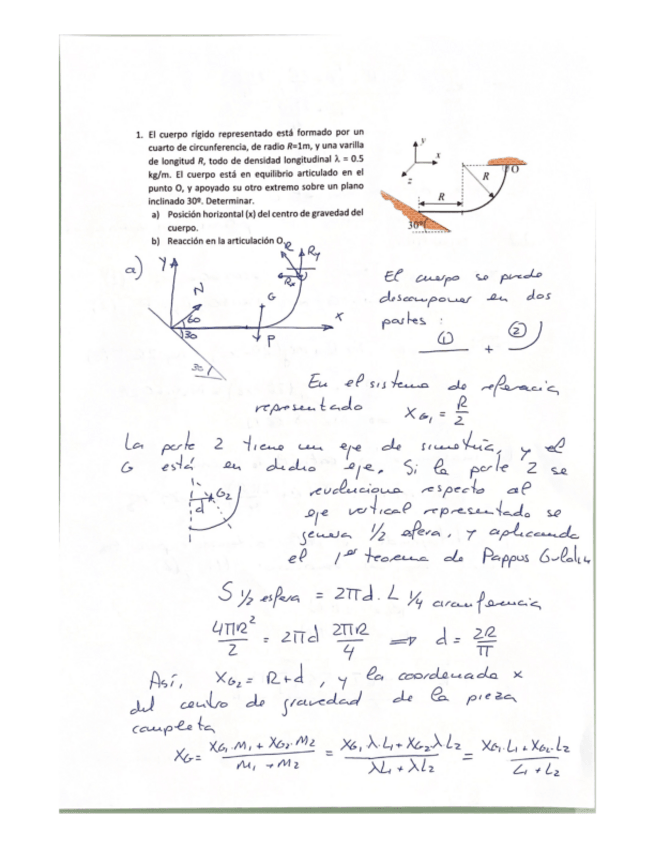 1. El cuerpo rígido representado está formado por un
cuarto de circunferencia, de radio R=1m, y una varilla
de longitud R, todo de densidad longitudinal λ = 0.5
kg/m. El cuerpo está en equilibrio articulado en el
punto O, y apoyado su otro extremo sobre un plano
inclinado 30º. Determinar.
a) Posición horizontal (x) del centro de gravedad del
cuerpo.
b) Reacción en la articulación O.
y
x
z
R
O
R
30º
a)
Y
N
60
30
30
G
P
R
Ry
Rx
X
El cuerpo se puede
descomponer en dos
partes :
① + ②
En el sistema de referencia
representado X_G1 = R/2
La parte 2 tiene un eje de simetría, y el
G está en dicho eje. Si la parte 2 se
revoluciona respecto al
eje vertical representado se
genera 1/2 esfera, y aplicando
el 1er teorema de Pappus Guldin
d
G2
S 1/2 esfera = 2πd . L 1/4 circunferencia
4πR²/2 = 2πd 2πR/4 ⟹ d = 2R/π
Así, X_G2 = R+d , y la coordenada x
del centro de gravedad de la pieza
completa
X_G = (X_G1·M1 + X_G2·M2)/(M1 + M2) = (X_G1 λ·L1 + X_G2 λ L2)/(λL1 + λL2) = (X_G1·L1 + X_G2·L2)/(L1 + L2)